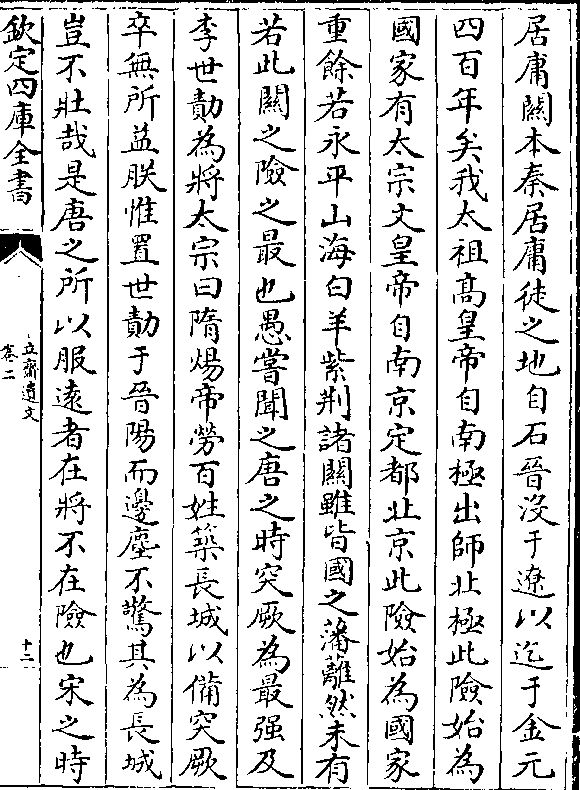 居庸關本秦居庸徒之地自石晉沒于遼以迄于金元
四百年矣我太祖高皇帝自南極出師北極此險始為
國家有太宗文皇帝自南京定都北京此險始為國家
重餘若永平山海白羊紫荆諸關雖皆國之藩蘺然未有
若此關之險之最也愚嘗聞之唐之時突厥為最强及
李世勣為將太宗曰隋煬帝勞百姓築長城以備突厥
卒無所益朕惟置世勣于晉陽而邊塵不驚其為長城
豈不壯哉是唐之所以服遠者在將不在險也宋之時
欽定四庫全書
立齋遺文
卷二
十二